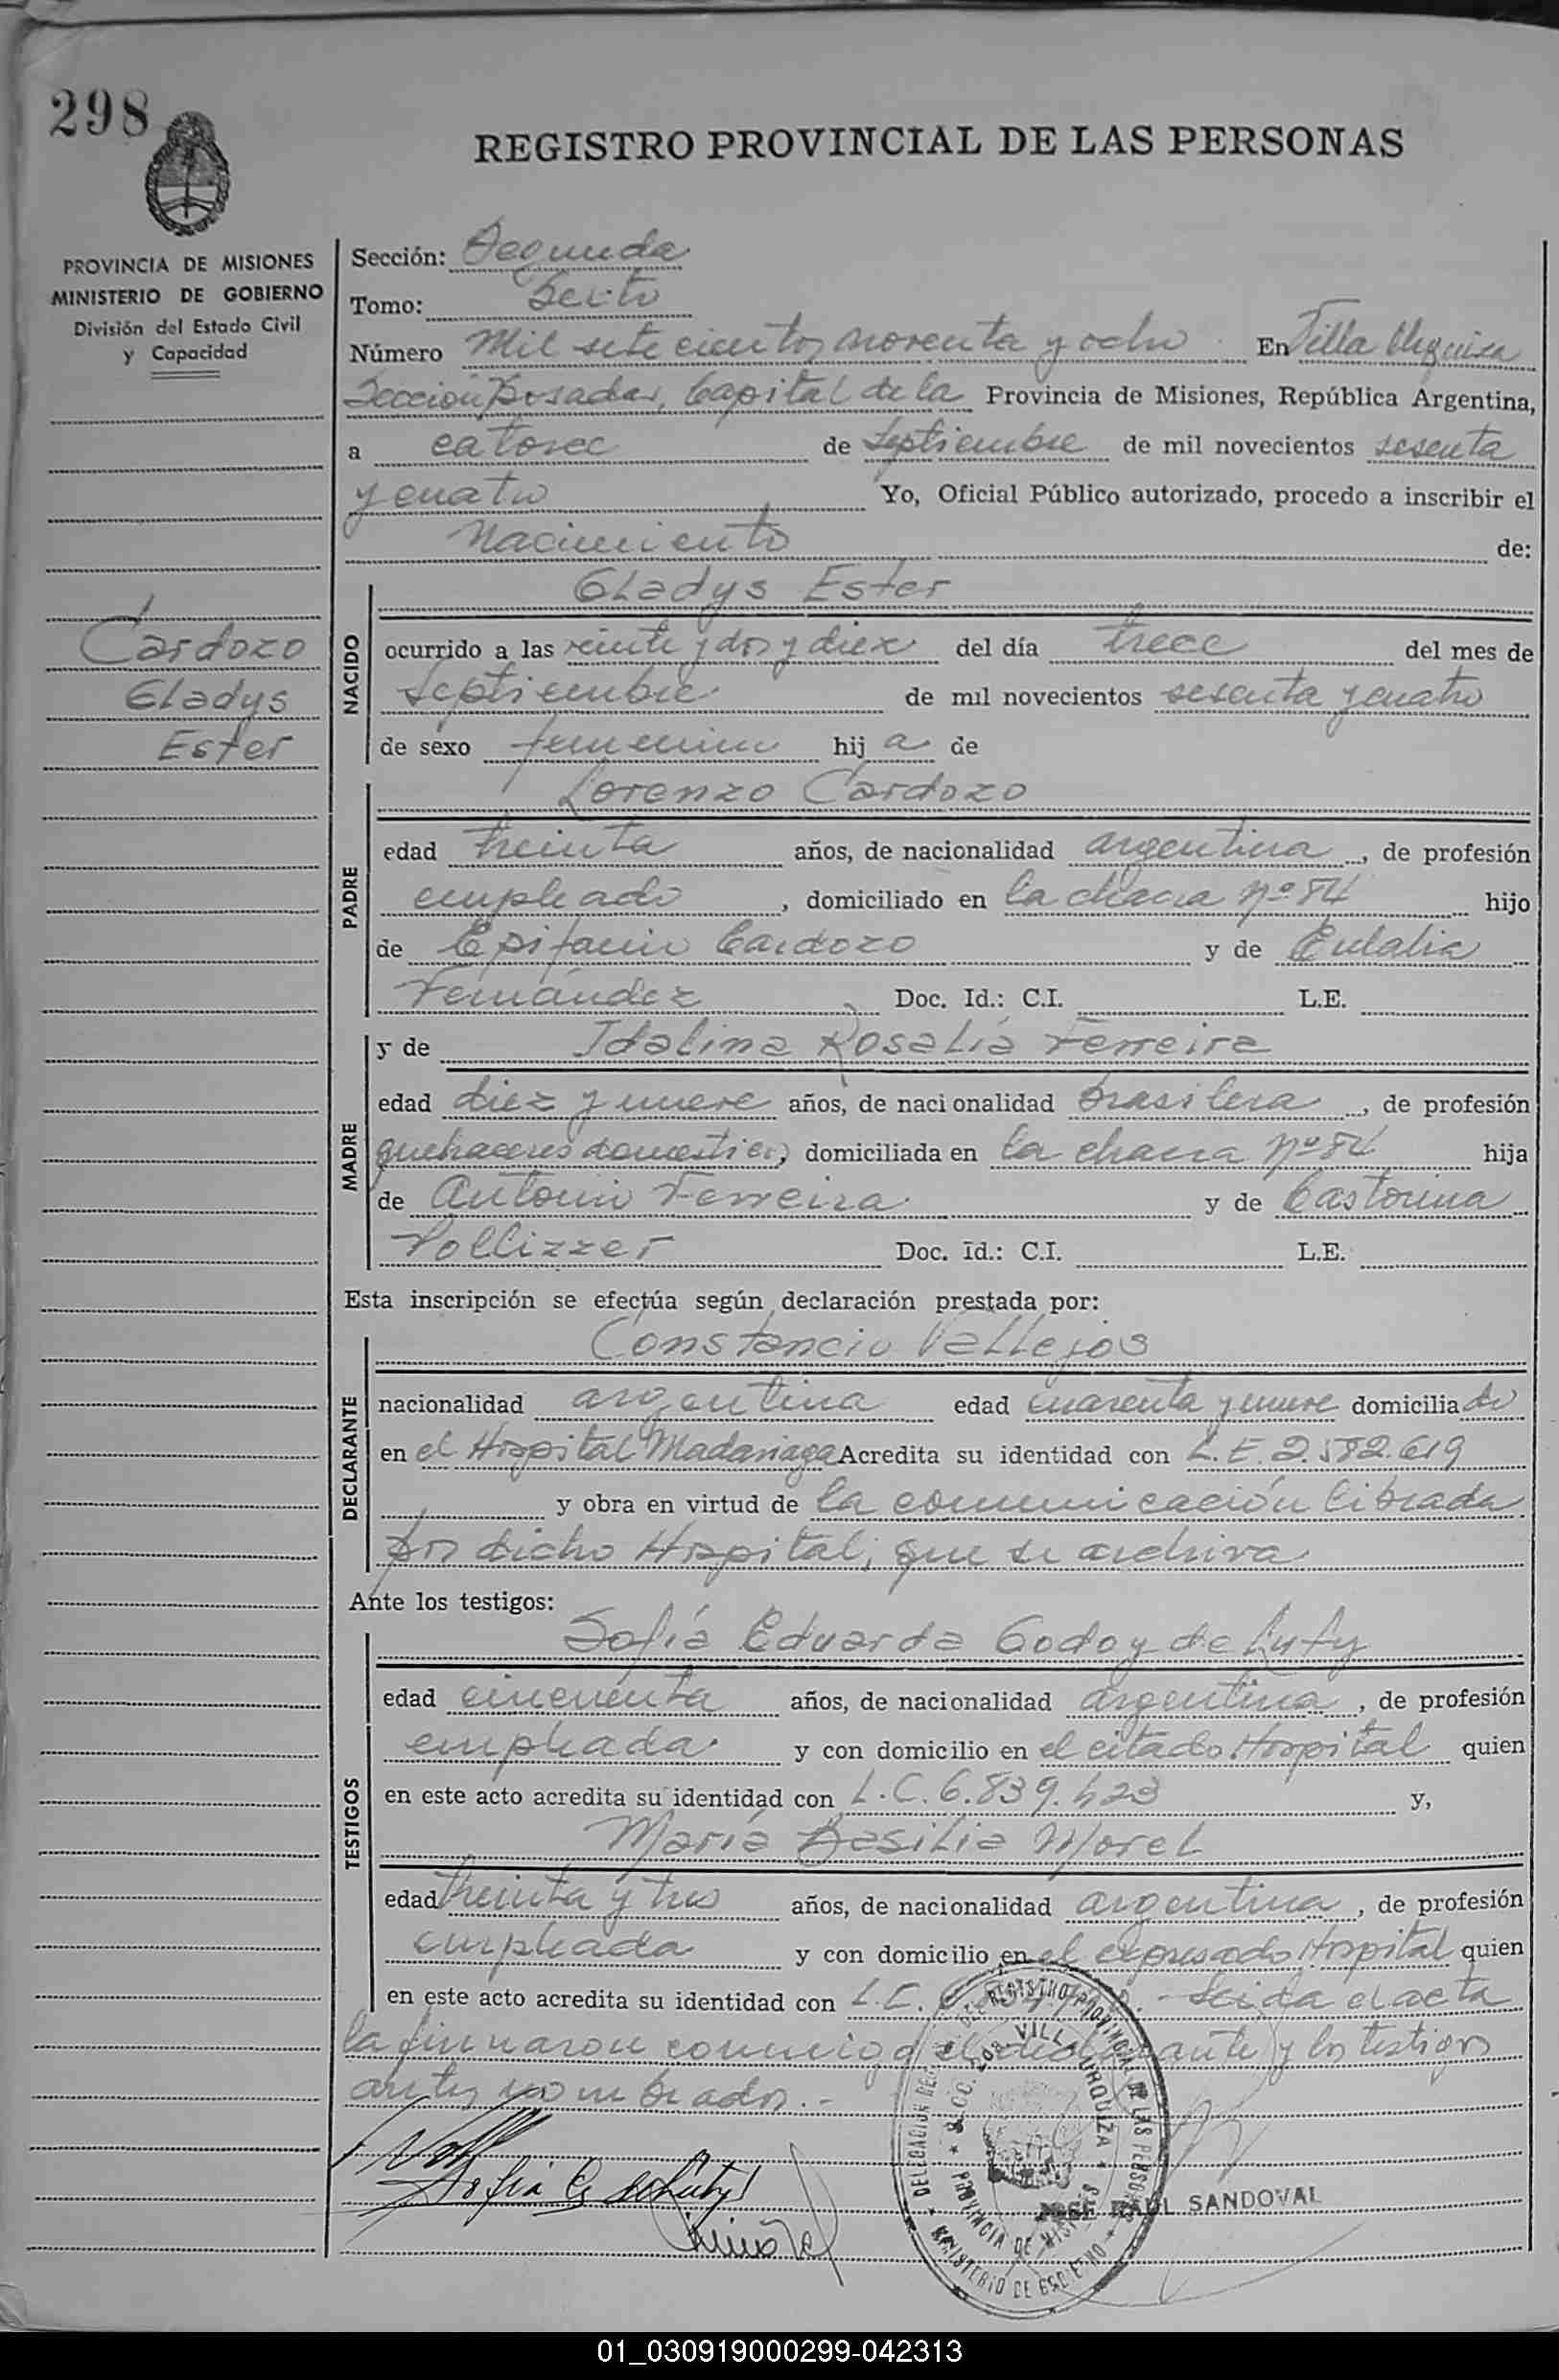 298
REGISTRO PROVINCIAL DE LAS PERSONAS
PROVINCIA DE MISIONES
MINISTERIO DE GOBIERNO
División del Estado Civil
y Capacidad
Sección: Segunda
Tomo: Sexto
Número Mil setecientos noventa y ocho En Villa Urquiza
Sección Posadas, Capital de la Provincia de Misiones, República Argentina,
a catorce de Septiembre de mil novecientos sesenta
y cuatro Yo, Oficial Público autorizado, procedo a inscribir el
Nacimiento de:
Cardozo
Gladys
Ester
NACIDO
Gladys Ester
ocurrido a las veinte y dos y diez del día trece del mes de
Septiembre de mil novecientos sesenta y cuatro
de sexo femenino hij a de
PADRE
Lorenzo Cardozo
edad treinta años, de nacionalidad argentina, de profesión
empleado, domiciliado en la chacra nº 84 hijo
de Epifanio Cardozo y de Eulalia
Fernández Doc. Id.: C.I. L.E.
MADRE
y de Idalina Rosalía Ferreira
edad diez y nueve años, de nacionalidad brasilera, de profesión
quehaceres domesticos, domiciliada en la chacra nº 84 hija
de Antonio Ferreira y de Castorina
Doc. Id.: C.I. L.E.
Esta inscripción se efectúa según declaración prestada por:
DECLARANTE
Constancio Vallejos
nacionalidad argentina edad cuarenta y nueve domicilia do
en el Hospital Madariaga Acredita su identidad con L.E. 2.582.619
y obra en virtud de la comunicación librada
por dicho Hospital, que se archiva
Ante los testigos:
TESTIGOS
Sofía Eduarda Godoy de
edad cincuenta años, de nacionalidad argentina, de profesión
empleada y con domicilio en el citado Hospital quien
en este acto acredita su identidad con L.C. 6.839.423 y,
María Basilia Morel
edad treinta y tres años, de nacionalidad argentina, de profesión
empleada y con domicilio en el expresado Hospital quien
en este acto acredita su identidad con L.C. Leida el acta
la firmaron conmigo el declarante y los testigos
antes nombrados.-
DELEGACION DEL REGISTRO PROVINCIAL DE LAS PERSONAS
SECC. 2da VILLA URQUIZA
PROVINCIA DE MISIONES
MINISTERIO DE GOBIERNO
JOSE RAUL SANDOVAL
01_030919000299-042313